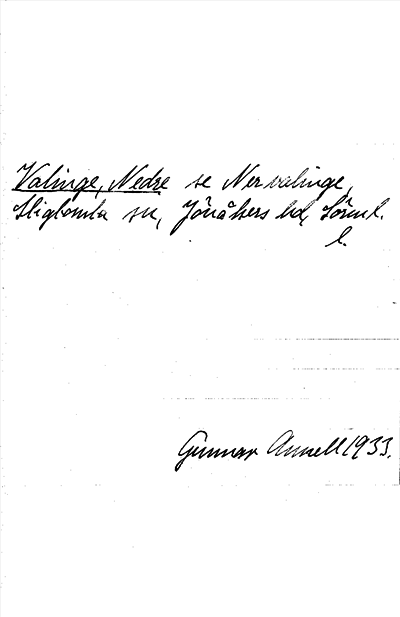 Valinge, Nedre se Nervalinge,
Stigtomta sn, Jönåkers hd, Söderml.
l.
Gunnar Annell 1933.